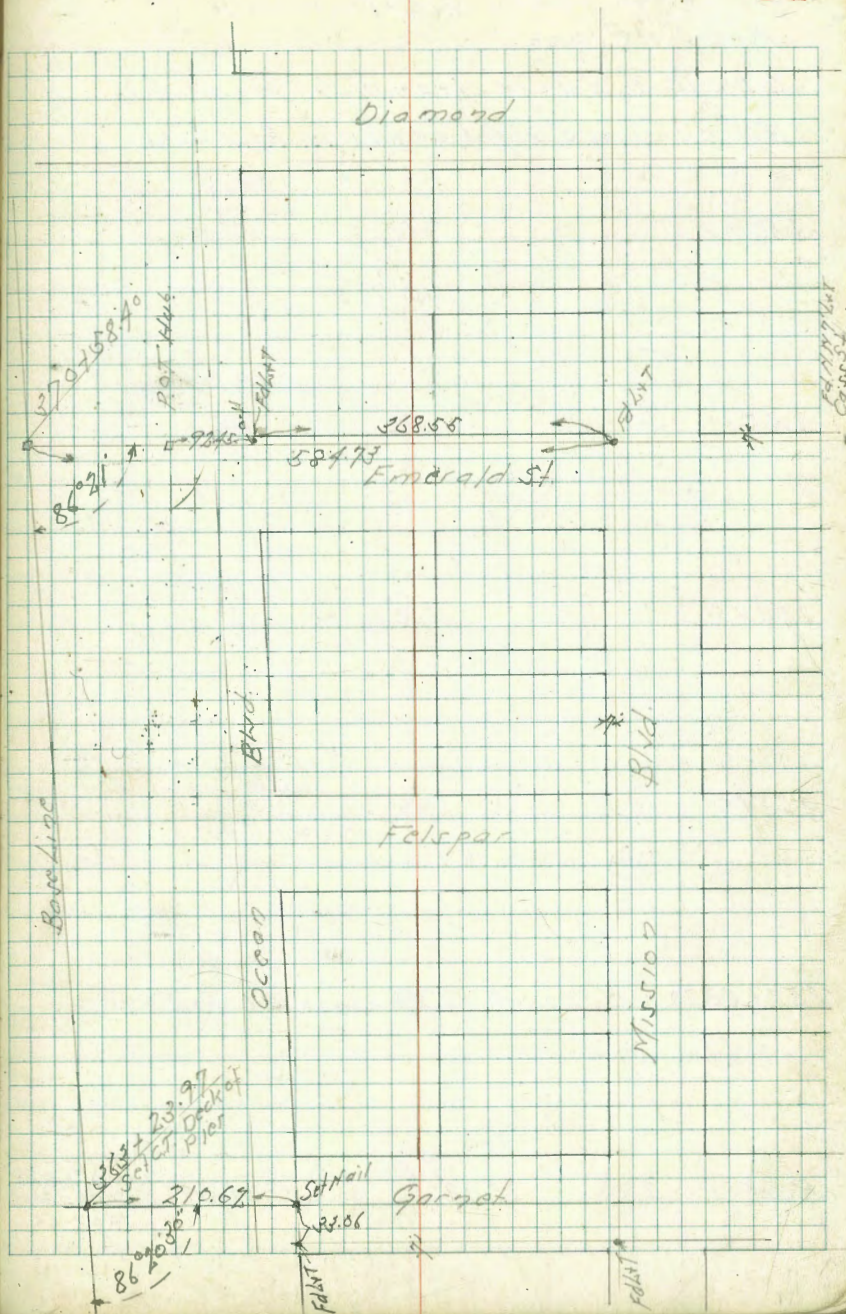 Diamond
370+68.40
P.O.T. Hub.
Fd L&T
Fd L&T
92.45
368.55
584.73
Emerald St.
86°21'
Blvd.
Blvd.
Base Line
Felspar
Ocean
Mission
363+23.97
Set C.T. Deck of
Pier
210.62
Set Nail
Garnet
33.06
86°20'30"
Fd L&T
Fd L&T